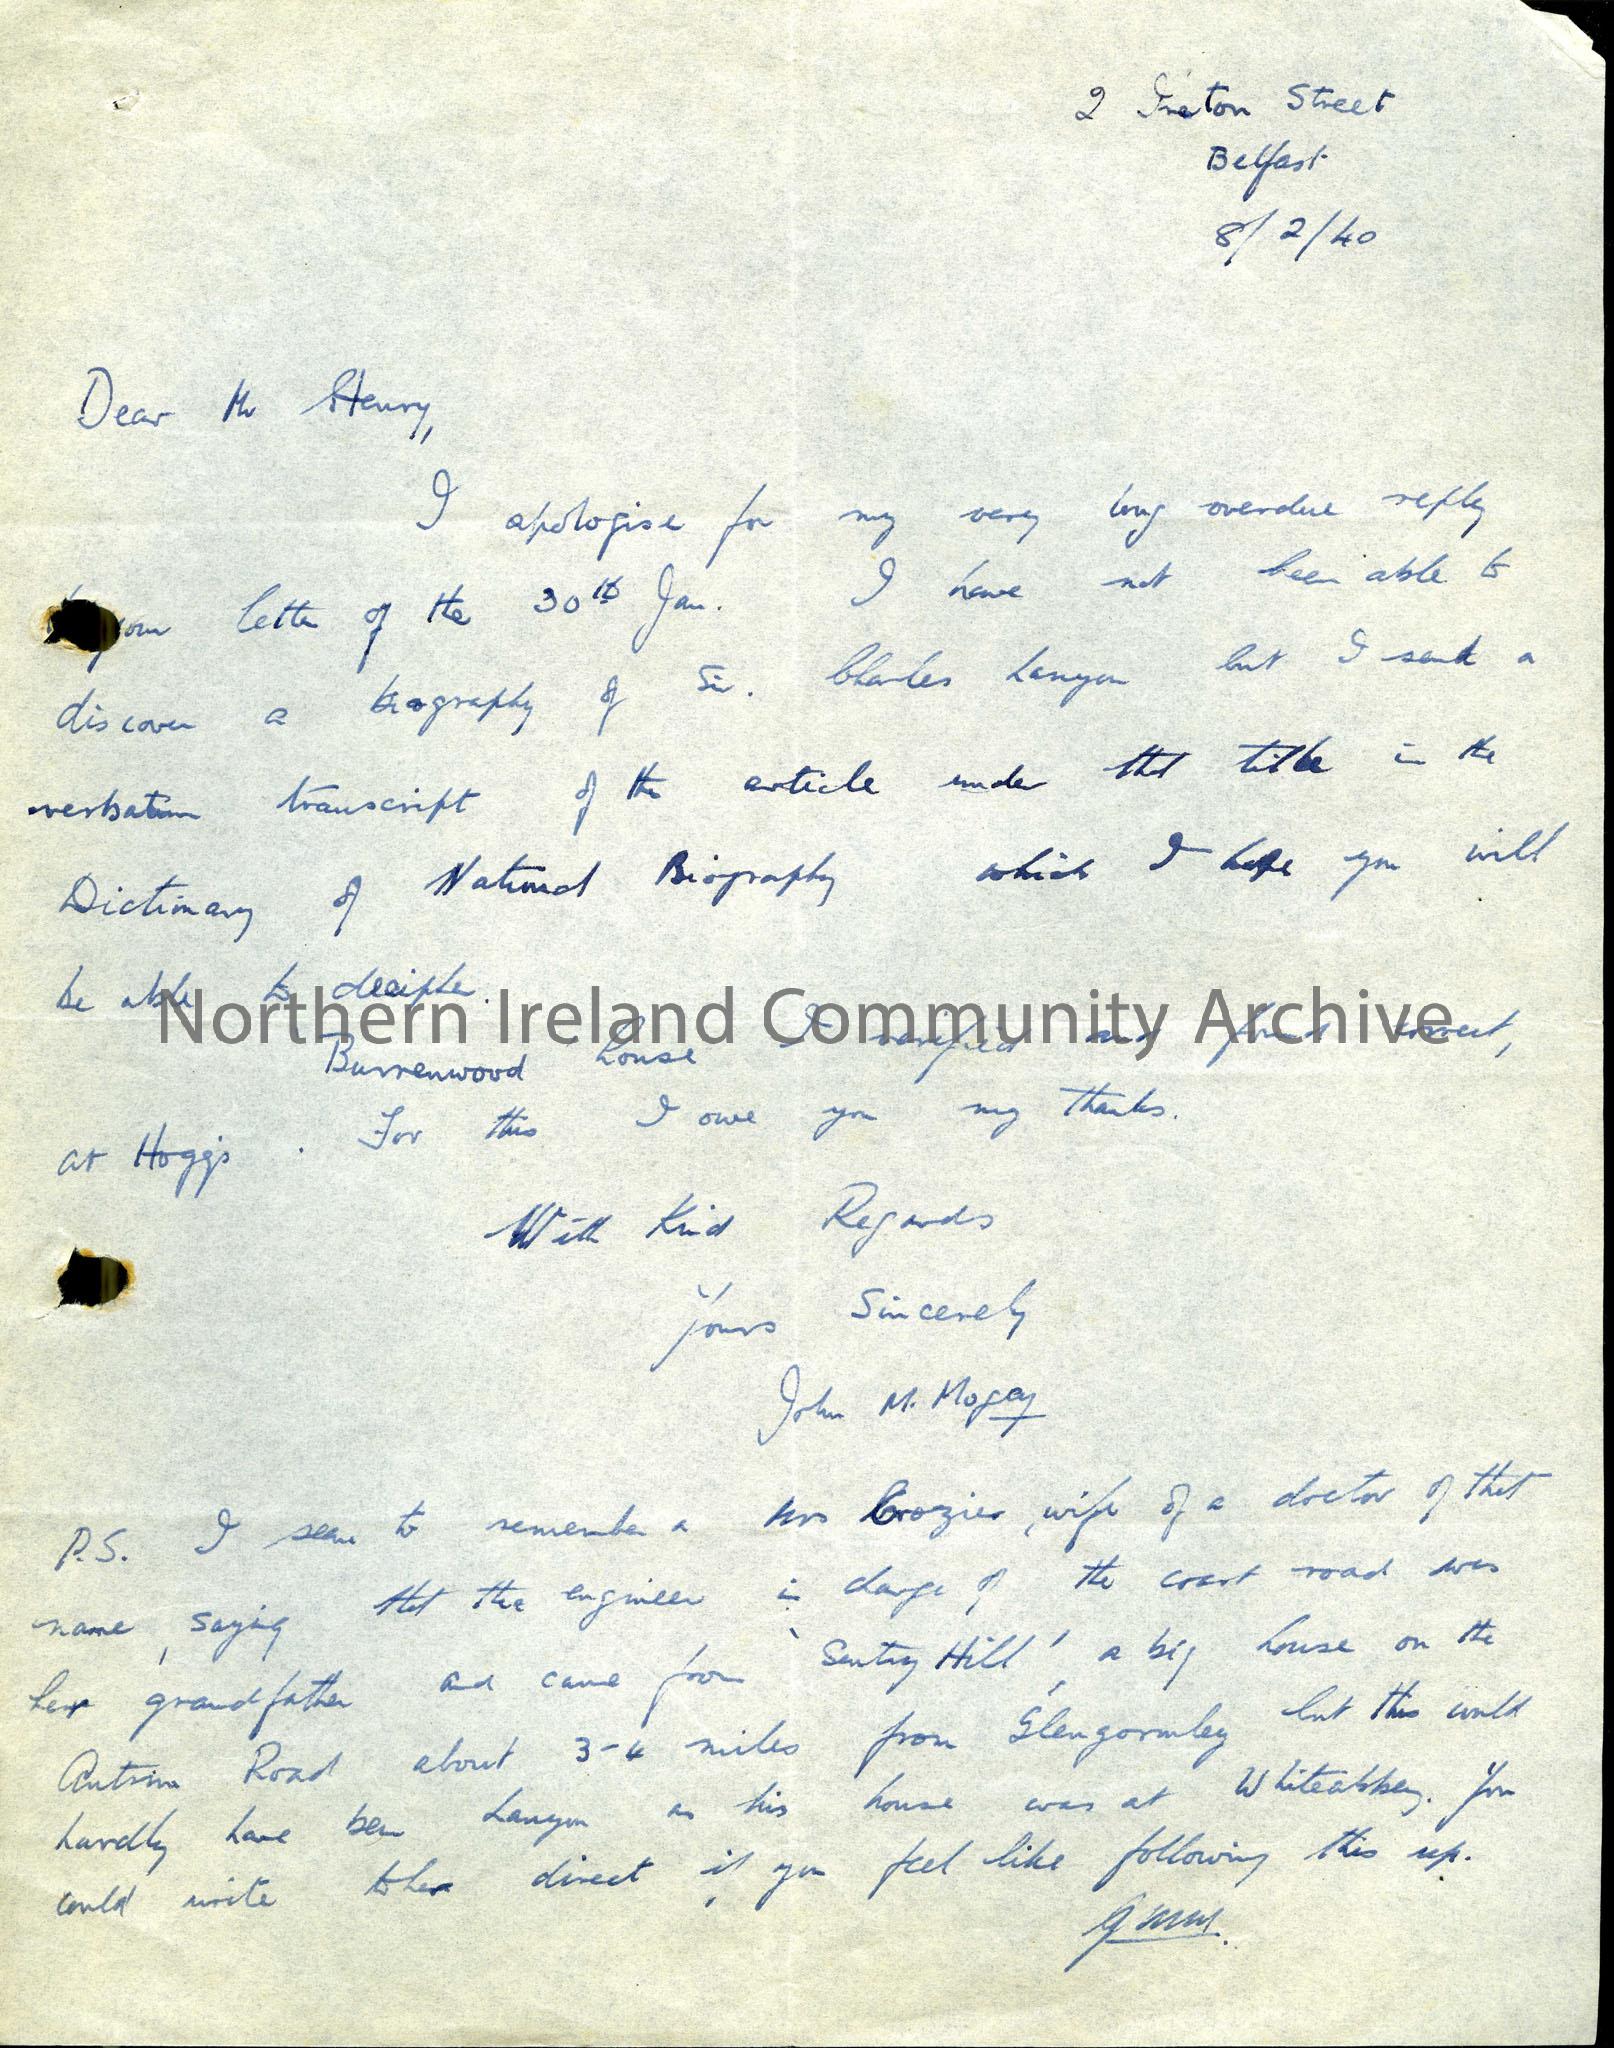 2 Ireton Street
Belfast
8/2/40
Dear Mr Henry,
I apologise for my very long overdue reply
your letter of the 30th Jan. I have not been able to
discover a biography of Sir. Charles Lanyon but I send a
verbatum transcript of the article under that title in the
Dictionary of National Biography which I hope you will
be able to decipher.
Northern Ireland Community Archive
Burrenwood house I verified and found correct,
at Hoggs. For this I owe you my thanks.
With Kind Regards
Yours Sincerely
John M. Mogey
P.S. I seem to remember a Mrs Crozier, wife of a doctor of that
name, saying that the engineer in charge of the coast road was
her grandfather and came from 'Sentry Hill', a big house on the
Antrim Road about 3-4 miles from Glengormley but this could
hardly have been Lanyon as his house was at Whiteabbey. You
could write to her direct, if you feel like following this up.